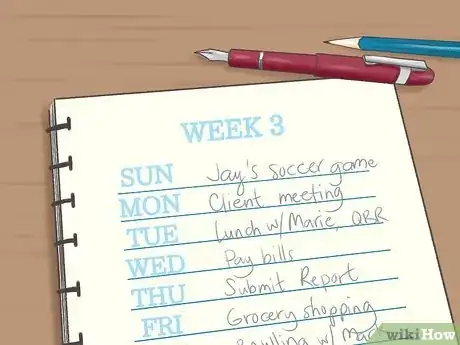 WEEK 3
SUN Jay's soccer game
MON Client meeting
TUE Lunch w/Marie, QBR
WED Pay bills
THU Submit Report
FRI Grocery shopping
wikiHow